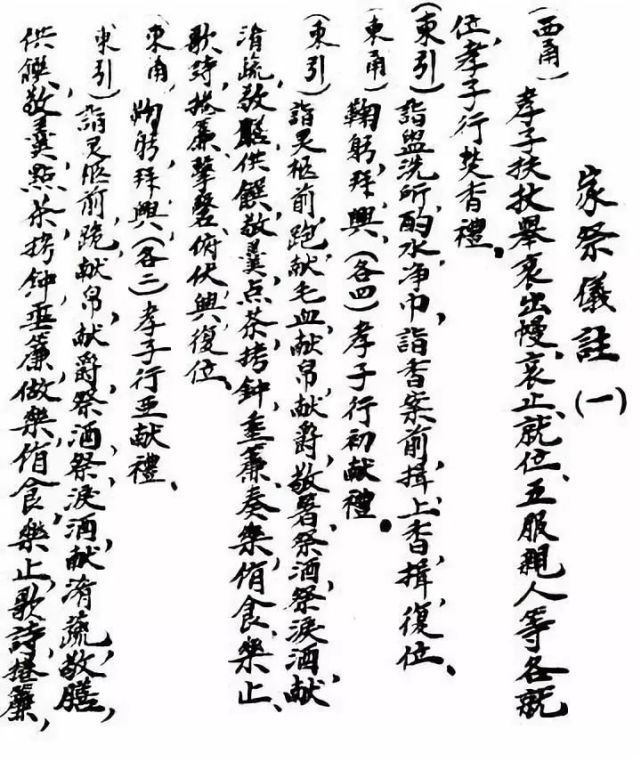 家祭儀註(一)
(西甬)孝子扶杖舉哀出幔、哀止、就位、五服親人等各就
位、孝子行焚香禮。
(東引)詣盥洗所酌水、净巾、詣香案前揖、上香、揖、復位、
(東甬)鞠躬、拜、興、(各四)孝子行初献禮。
(東引)詣灵柩前跑、献毛血、献帛、献爵、敬箸、祭酒、祭淚酒、献
淯疏、敬膳、供饌、敬羹、点茶、拷鈡、垂簾、奏樂、侑食、樂止、
歌詩、捲簾、擊磬、俯伏、興、復位、
東甬、鞠躬、拜、興、(各二)孝子行亚献禮、
東引)詣灵柩前跪、献帛、献爵、祭酒、祭淚酒、献淯疏、敬膳、
供饌、敬羹、點茶、拷鈡、垂簾、做樂、侑食、樂止、歌詩、捲簾、